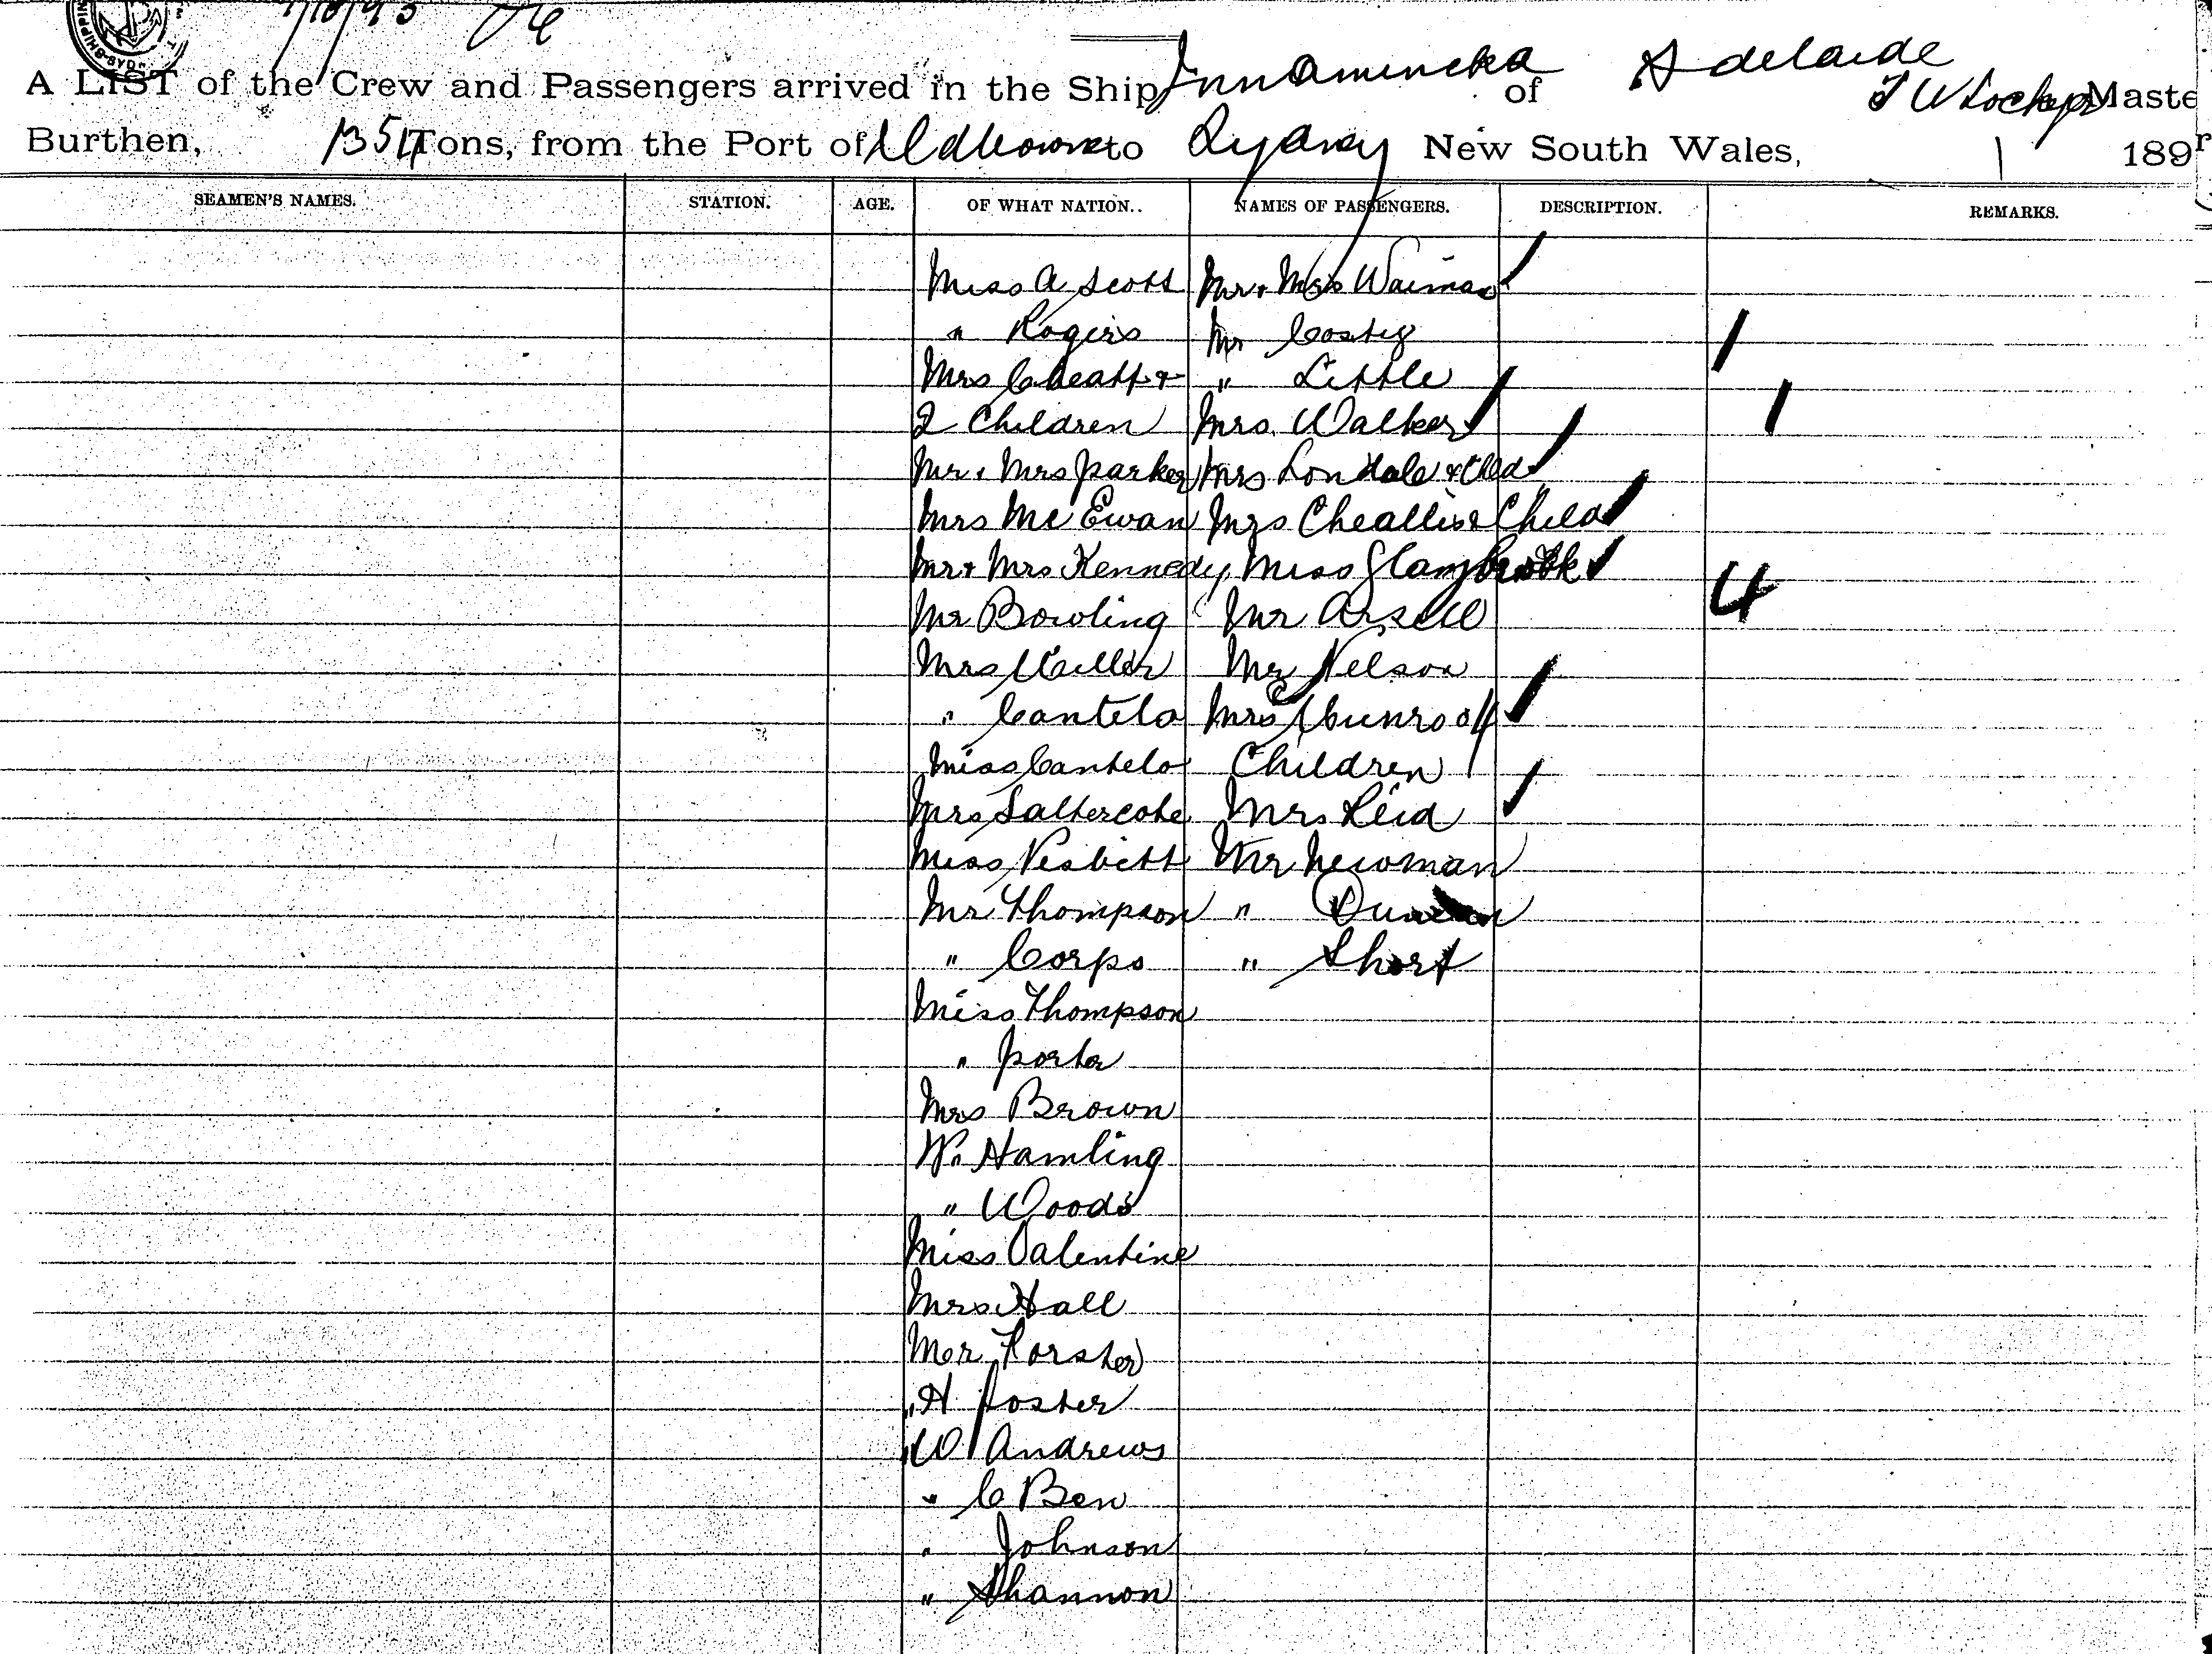 A LIST of the Crew and Passengers arrived in the Ship Innamincka of Adelaide
T W Lockyer Maste
Burthen, 1354 Tons, from the Port of Melbourne to Sydney New South Wales, 1 189
SEAMEN'S NAMES. STATION. AGE. OF WHAT NATION.. NAMES OF PASSENGERS. DESCRIPTION. REMARKS.
Miss A Scott Mr & Mrs Waiman
" Rogers Mr Costig
Mrs Cheatt & " Little
2 Children Mrs Walker
Mr & Mrs Parker Mrs Londale & Child
Mrs Mc Ewan Mrs Cheallis & Child
Mr & Mrs Kennedy Miss
Mr Bowling Mr Arsell 4
Mrs Miller Mr Nelson
" Cantelo Mrs Munro & 4
Miss Cantelo Children
Mrs Saltercote Mrs Reid
Miss Nesbitt Mr Newman
Mr Thompson " Duncan
" Corps " Short
Miss Thompson
" Porter
Mrs Brown
Mr Hamling
" Woods
Miss Valentine
Mrs Hall
Mr Forster
" H Foster
" W Andrews
" C Ben
" Johnson
" Shannon